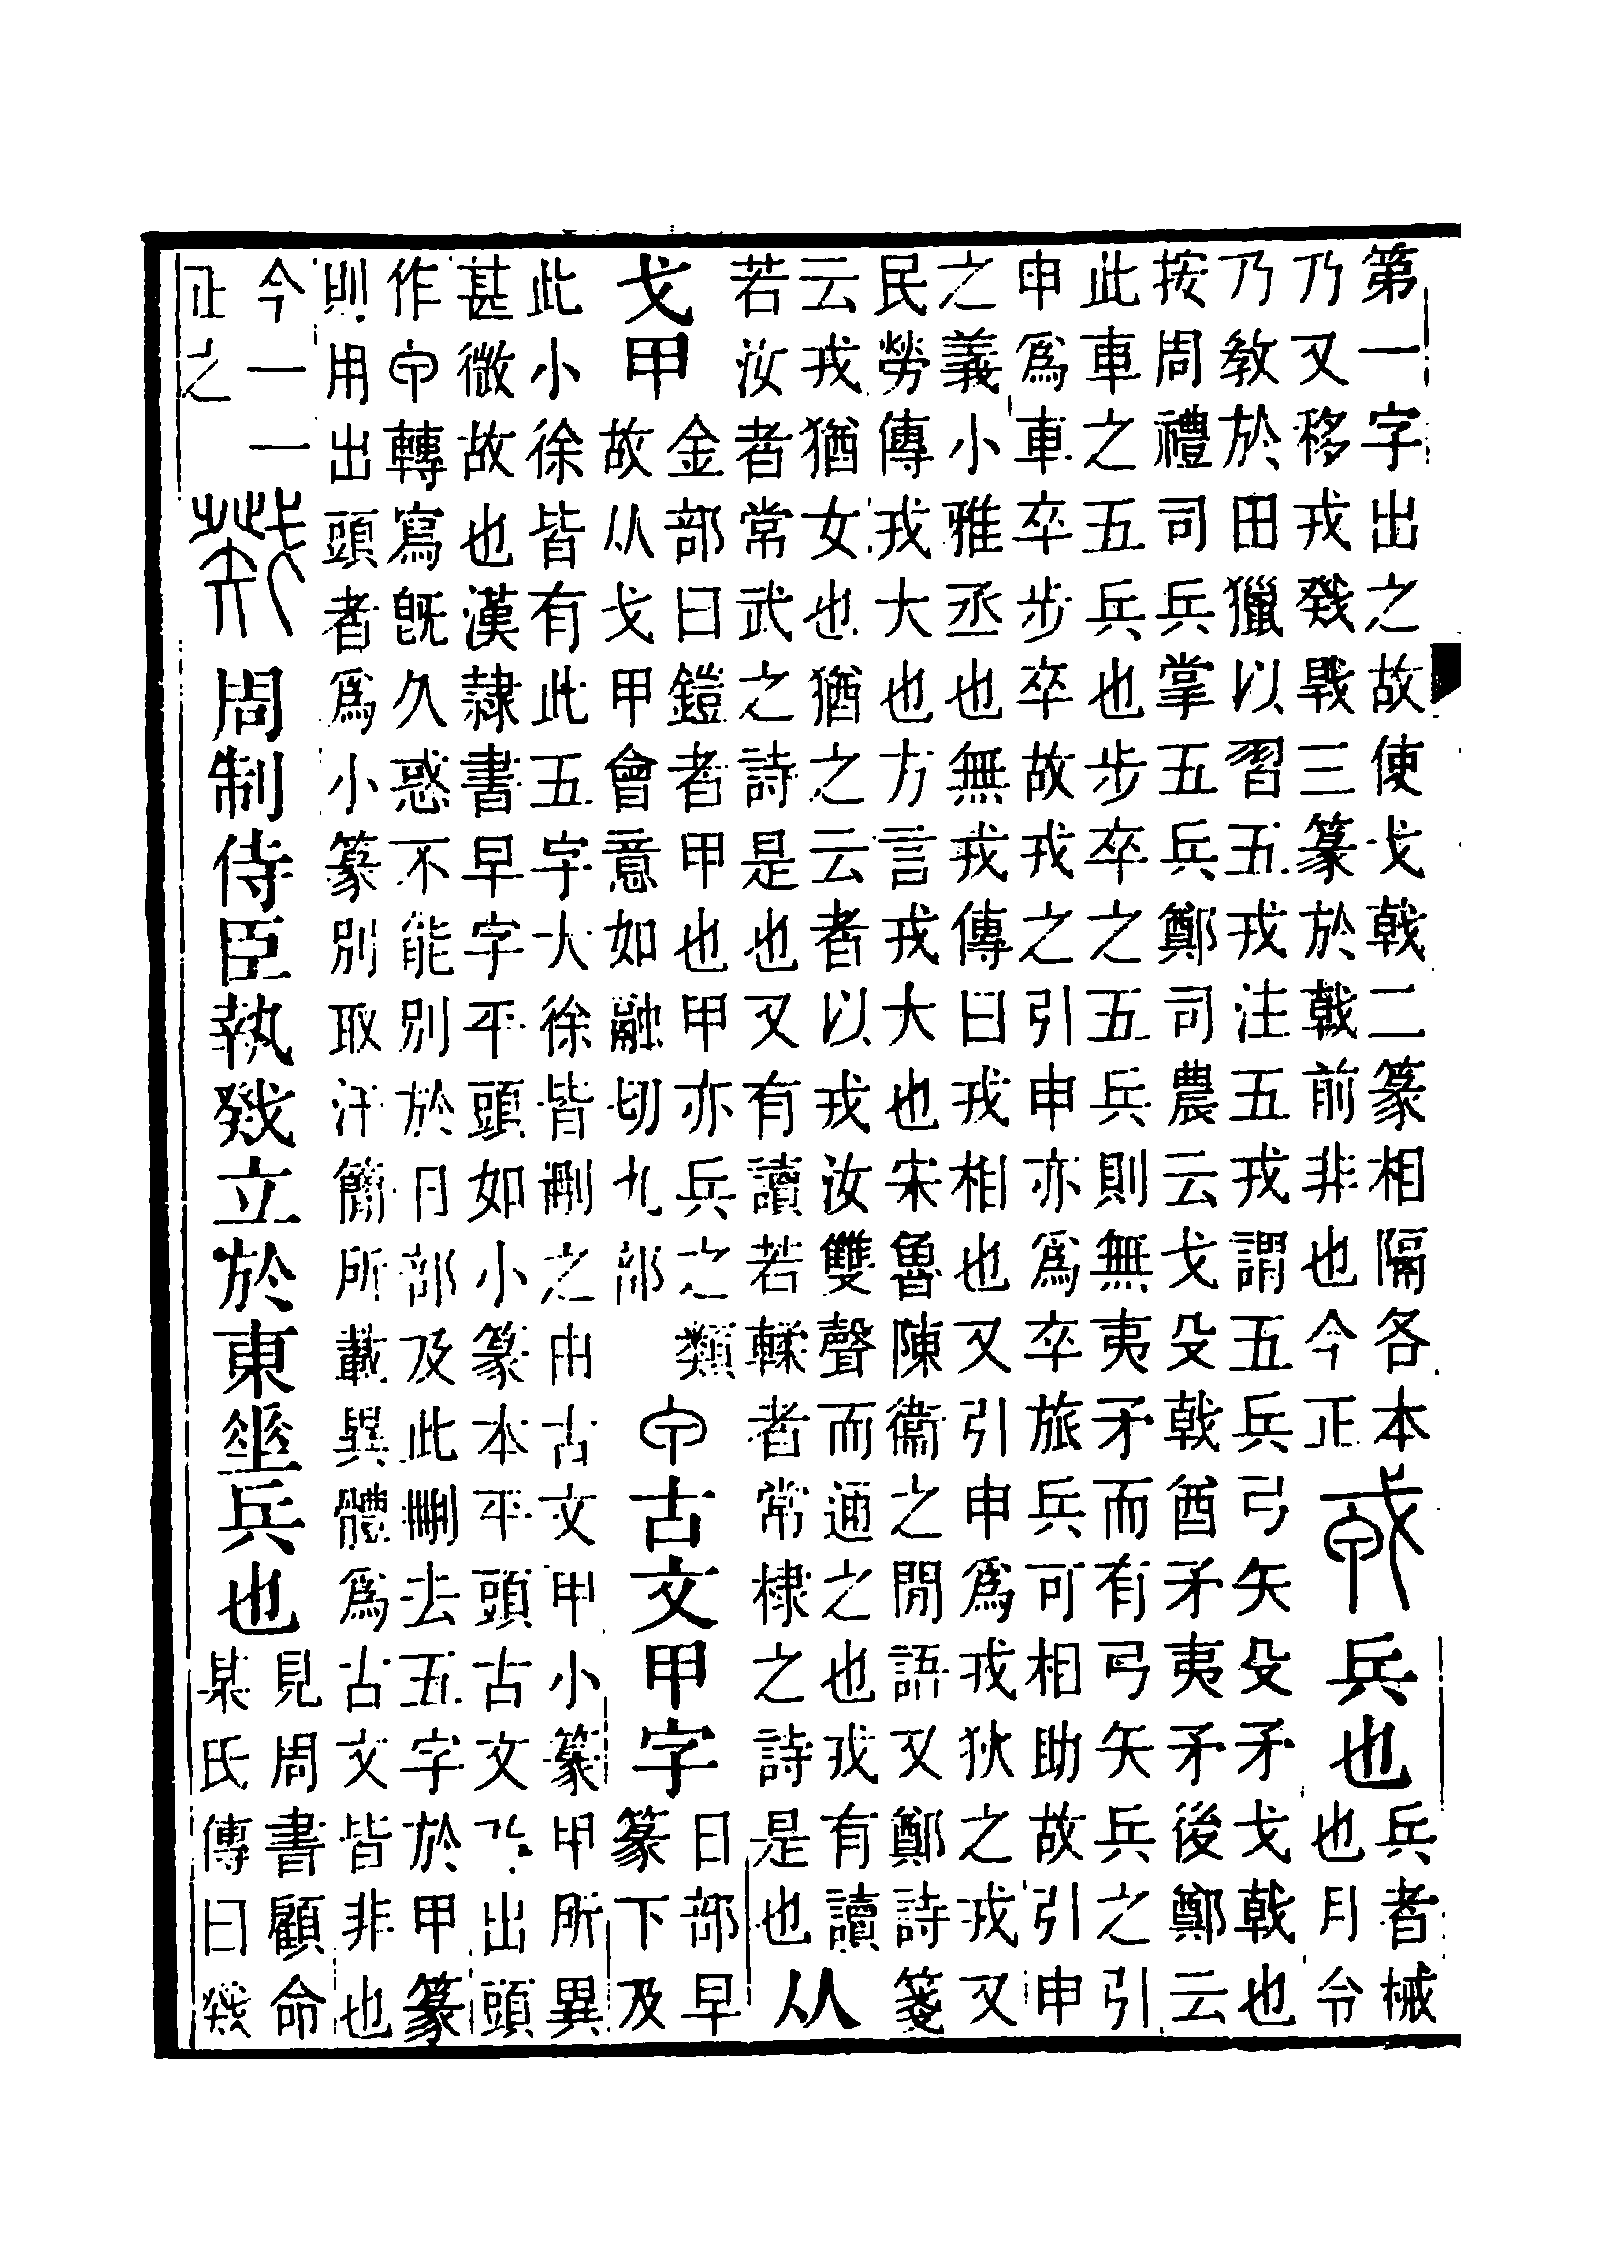 第一字出之故使戈戟二篆相隔各本
乃又移戎戣𢧢三篆於戟前非也今正
戎 兵也
兵者械
也月令
乃教於田獵以習五戎注五戎謂五兵弓矢殳矛戈戟也
按周禮司兵掌五兵鄭司農云戈殳戟酋矛夷矛後鄭云
此車之五兵也步卒之五兵則無夷矛而有弓矢兵之引
申爲車卒步卒故戎之引申亦爲卒旅兵可相助故引申
之義小雅丞也無戎傳曰戎相也又引申爲戎狄之戎又
民勞傳戎大也方言戎大也宋魯陳衞之閒語又鄭詩箋
云戎猶女也猶之云者以戎汝雙聲而通之也戎有讀
若汝者常武之詩是也又有讀若𨎌者常棣之詩是也
从
戈甲
金部曰鎧者甲也甲亦兵之類
故从戈甲會意如融切九部
𠇚古文甲字
日部早
篆下及
此小徐皆有此五字大徐皆刪之由古文甲小篆甲所異
甚微故也漢隸書早字平頭如小篆本平頭古文乃出頭
作𠇚轉寫旣久惑不能別於日部及此刪去五字於甲篆
則用出頭者爲小篆別取汗簡所載異體爲古文皆非也
今一一
正之
戣 周制侍臣執戣立於東𡍮兵也
見周書顧命
某氏傳曰戣